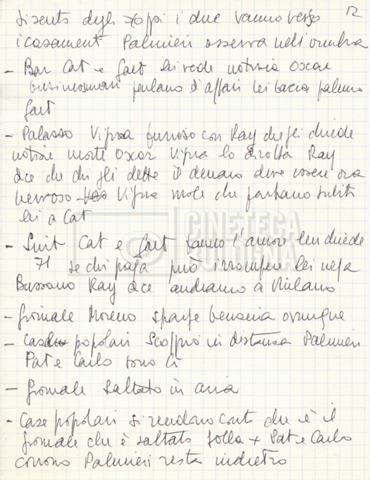 12
disento degli zoppi i due vanno verso
i casamenti Palmieri osserva nell'ombra
- Bar Cat e Gart lei vede notizia Oscar
businessmen parlano d'affari lei bacia palmo
Gart
- Palazzo Vigna furioso con Ray che gli chiede
notizie morte Oscar Vigna lo strolla Ray
dice che chi gli dette il denaro deve essere ora
nervoso Vigna vuole che partano subito
lei a Cat
- Suit Cat e Gart fanno l'amore lui chiede
71 se chi paga può irrompere lei nega
Bussano Ray dice andiamo a Milano
- Giornale Moreno sparge benzina ovunque
- Case popolari Scoppio in distanza Palmieri
Pat e Carlo sono lì
- Giornale saltato in aria
- Case popolari si rendono conto che è il
giornale che è saltato folla + Pat e Carlo
corrono Palmieri resta indietro
CINETECA
BOLOGNA